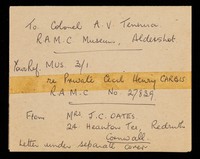 To Colonel A V Tennuci
R.A.M.C Museum, Aldershot
Your Ref. MUS 3/1
re Private Cecil Henry CARBIS
R.A.M.C No 27839
From MRS J.C. OATES
24 Heanton Tec, Redruth
Cornwall
Letter under separate cover